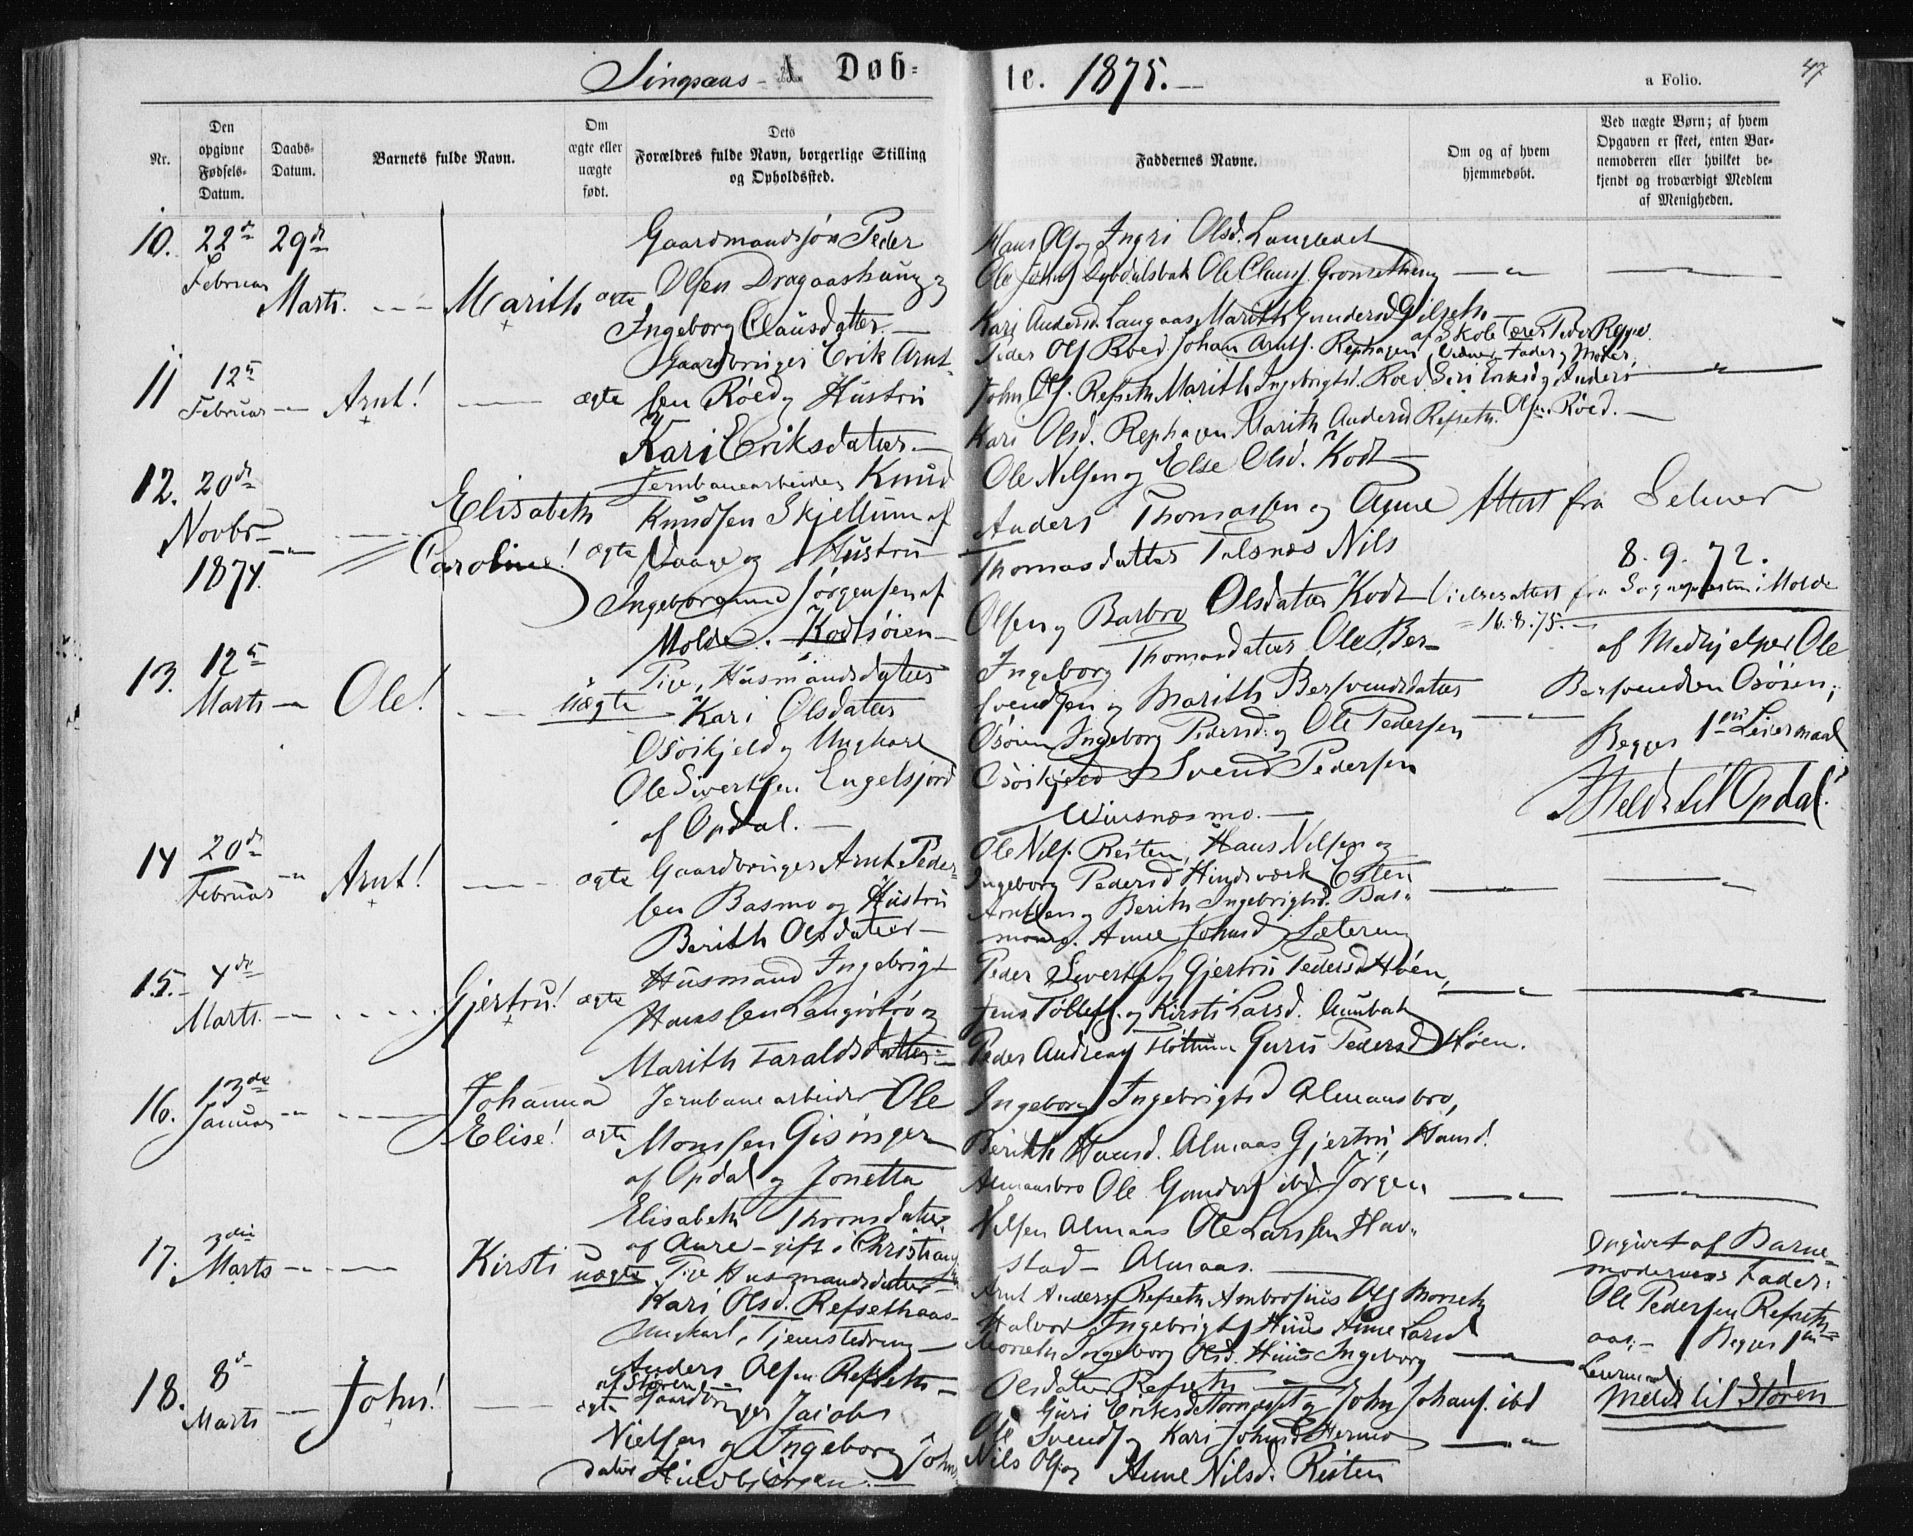 Singsaas A Døb=
te. 1875.
a Folio.
47
Nr.
Den
opgivne
Fødsels-
Datum.
Daabs-
Datum.
Barnets fulde Navn.
Om
ægte eller
uægte
født.
Dets
Forældres fulde Navn, borgerlige Stilling
og Opholdssted.
Faddernes Navne.
Om og af hvem
hjemmedøbt.
Ved uægte Børn; af hvem
Opgaven er skeet, enten Bar-
nemoderen eller hvilket be-
kjendt og troværdigt Medlem
af Menigheden.
10. 22de Februar
29de Marts.
Marith
ægte
Gaardmandssøn Peder
Olsen Dragaashaug og
Ingeborg Clausdatter.
Hans Ols. og Ingri Olsd. Langledet
Ole Johns. Dybdalsbak Ole Claus.
Kari Andersd. Langaas, Marith Gundersd.
11 12te Februar
Arnt!
ægte
Gaardbruger Erik Arnt-
sen Røed og Hustru
Kari Eriksdatter.
Peder Ols. Roed Johan Arnts. Rephagen
af Skolelærer Peder
Fader og Moder.
John Ols. Refseth Marith Ingebrigtsd. Roed Siri Eriksd. og Anders
Kari Olsd. Rephagen Marith Andersd. Refseth. Olsen Røed.
12. 20de
Novbr
1874.
Elisabeth
Caroline!
ægte
Jernbanearbeider Knud
Knudsen Skjellum af
Vaage og Hustru
Jørgensen af
Molde. Kodtsøien
Ole Nilsen og Else Olsd. Kodt
Anders Thomassen og Anne
Thomasdatter Talsnes Nils
Olsen og Barbro Olsdatter Kodt
Attest fra Selmer
8.9.72.
Vielsesattest fra Sognepresten i Molde
16.8.75.
13. 12te
Marts
Ole!
uægte
Pige, Husmandsdatter
Kari Olsdatter
Osøikjeld og Ungkarl
Ole Sivertsen Engelsjord
af Opdal.
Ingeborg Thomasdatter Ole Ber-
svendsen og Marith Bersvendsdatter
Osøien Ingeborg Pedersd. og Ole Pedersen
Osøikjeld Svend Pedersen
af Medhjelper Ole
Bersvendsen Osøien;
Begges 1ste Leiermaal
Meldt til Opdal!
14 20de
Februar
Arnt!
ægte
Gaardbruger Arnt Peder-
sen Basmo og Hustru
Berith Olsdatter
Ole Nils. Reiten, Hans Nilsen og
Ingeborg Pedersd. Hindsværk Esten
Arntsen og Berith Ingebrigtsd. Bas-
Anne Johnsd. Sæteren
15. 4de
Marts.
Gjertru!
ægte
Husmand Ingebrigt
Hanssen Langøibrø og
Marith Haraldsdatter
Peder Siverts. og Gjertru Pedersd. Høen,
Jens Tollefs. og Kirsti Larsd. Aunbak
Peder Andreas. Flottum Guru Pedersd. Høen.
16. 13de
Januar
Johanna
Elise!
ægte
Jernbanearbeider Ole
Monssen Gisinger
af Opdal og Jonetta
Elisabeth Thronsdatter
af Aure
Ingeborg Ingebrigtsd. Almaasbro,
Berith Hansd. Almaas Gjertru Hansd.
Almaasbro Ole Gunders. ibd. Jørgen
Nilsen Almaas Ole Larssen Hav-
stad Almaas.
17. 3die
Marts
Kirsti
uægte
Pige Husmandsdatter
Kari Olsd. Refsethaas
Ungkarl, Tjenestedreng
Anders Olsen Refseth
af Støren
Arnt Anders. Refseth Ambrosius Ols. Morseth
Halvor Ingebrigts. Huus Anne Larsd.
Morseth Ingeborg Olsd. Huus Ingeborg
Olsdatter Refseth
Angivet af Barne-
moderens Fader:
Ole Pedersen Refseth-
aas. Begges 1ste
Leiermaal
Meldt til Støren
18. 8de
Marts
John!
ægte
Gaardbruger Jacob
Nielsen og Ingeborg Johns-
datter Hindbjørgen.
Guri Eriksd. og John Johans. ibd
Ole Svends. og Kari Johnsd. Hermo
Nils Ols. og Anne Nilsd. Reiten